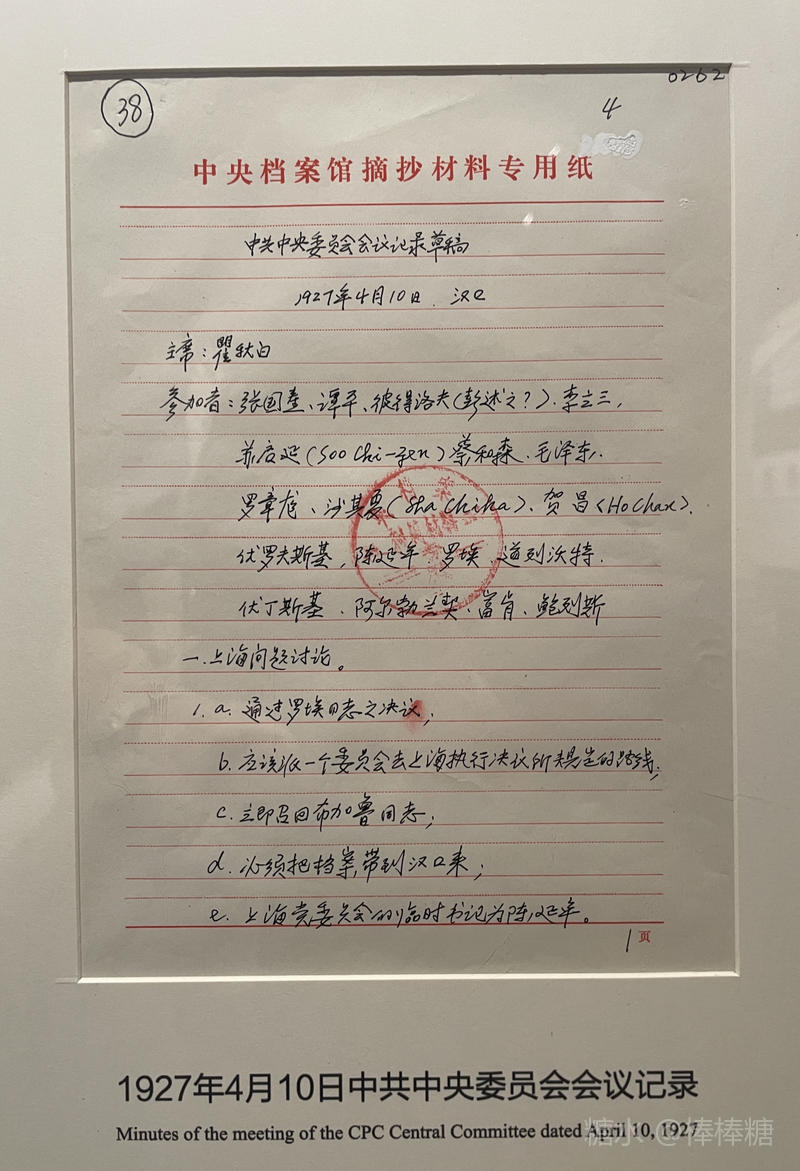 0262
38
4
中央档案馆摘抄材料专用纸
中共中央委员会会议记录草稿
1927年4月10日 汉口
主席：瞿秋白
参加者：张国焘、谭平、彼得洛夫(彭述之？)、李立三，
苏广延(Soo Chi-yen)蔡和森、毛泽东、
罗章龙、沙其夏(Sha Chiha)、贺昌<Ho Chan>、
优罗夫斯基，陈延年 罗埃 道列沃特、
优丁斯基、阿尔勃兰契、富肯、鲍列斯
一、上海问题讨论。
1. a. 通过罗埃同志之决议；
b. 应该派一个委员会去上海执行决议所规定的路线；
c. 立即召回布加鲁同志；
d. 必须把档案带到汉口来；
e. 上海党委员会的临时书记为陈延年。
1页
1927年4月10日中共中央委员会会议记录
Minutes of the meeting of the CPC Central Committee dated April 10, 1927
糖水 @棒棒糖